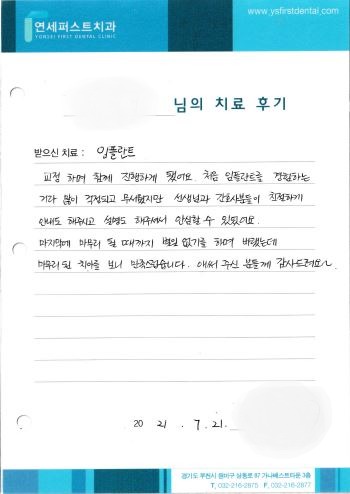 연세퍼스트치과
YONSEI FIRST DENTAL CLINIC
www.ysfirstdental.com
님의 치료 후기
받으신 치료 : 임플란트
교정 하며 함께 진행하게 됐어요. 처음 임플란트를 경험하는
거라 많이 걱정되고 무서웠지만 선생님과 간호사분들이 친절하게
안내도 해주시고 설명도 해주셔서 안심할 수 있었어요.
마지막에 마무리 될 때까지 별일 없기를 하며 바랬는데
마무리 된 치아를 보니 만족스럽습니다. 애써 주신 분들께 감사드려요~
20 21. 7. 21.
경기도 부천시 원미구 상동로 87 가나베스트타운 3층
T. 032-216-2875 F. 032-216-2877